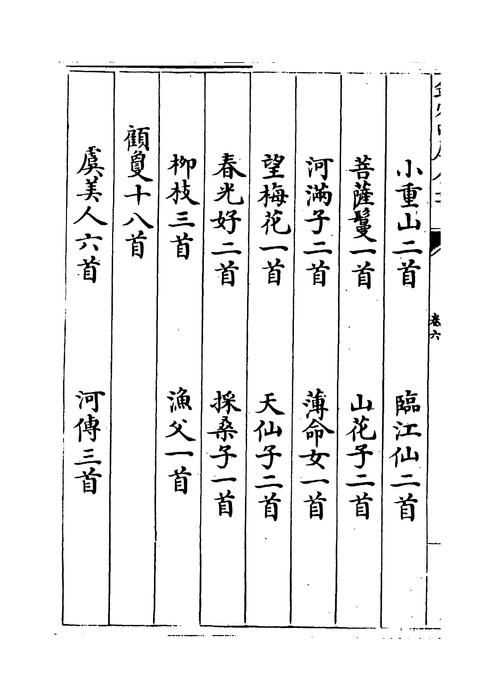 卷六
小重山二首　臨江仙二首
菩薩鬘一首　山花子二首
河滿子二首　薄命女一首
望梅花一首　天仙子二首
春光好二首　採桑子一首
柳枝三首　漁父一首
顧敻十八首
虞美人六首　河傳三首